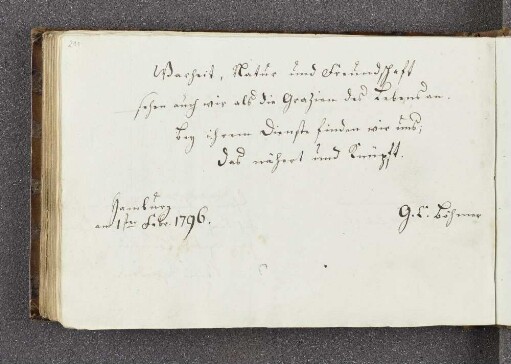 Warheit, Natur und Freundschaft
sehen auch wir als die Grazien des Lebens an.
Bey ihrem Dienste finden wir uns;
das nähert und knüpft.
Hamburg
am 1sten Febr. 1796.
G. L. Böhmer